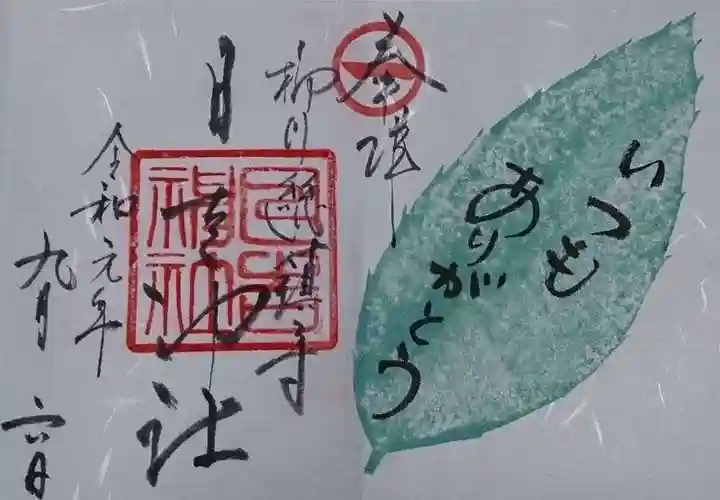 いつも
ありがとう
奉拝
柳川総鎮守
日吉神社
日吉
神社
令和元年
九月
六日